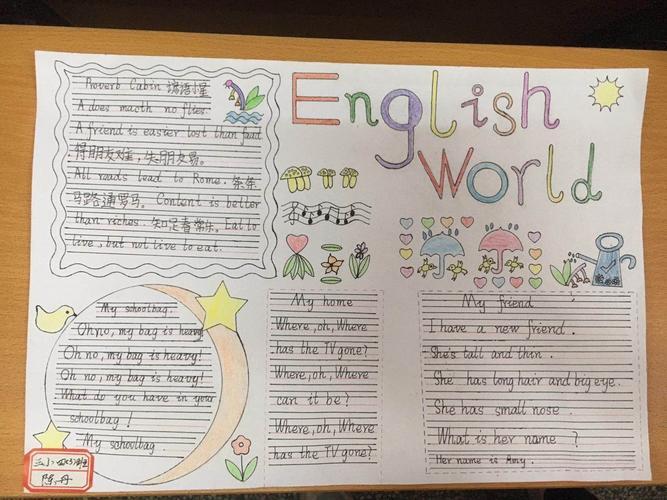 English
World
Proverb Cabin 谚语小屋
A does macth no flies.
A friend is easier lost than faud
得朋友难，失朋友易。
All roads lead to Rome. 条条
马路通罗马。 Content is better
than riches. 知足者常乐。 Eat to
live, but not live to eat.
My schoolbag.
Oh no, my bag is heavy
Oh no, my bag is heavy!
Oh no, my bag is heavy!
What do you have in your
schoolbag!
My schoolbag
My home
Where, oh, Where
has the TV gone?
Where, oh, Where
can it be?
Where, oh, Where
has the TV gone?
My friend
I have a new friend.
She's tall and thin.
She has long hair and big eye.
She has small nose.
What is her name ?
Her name is Amy.
陈丹